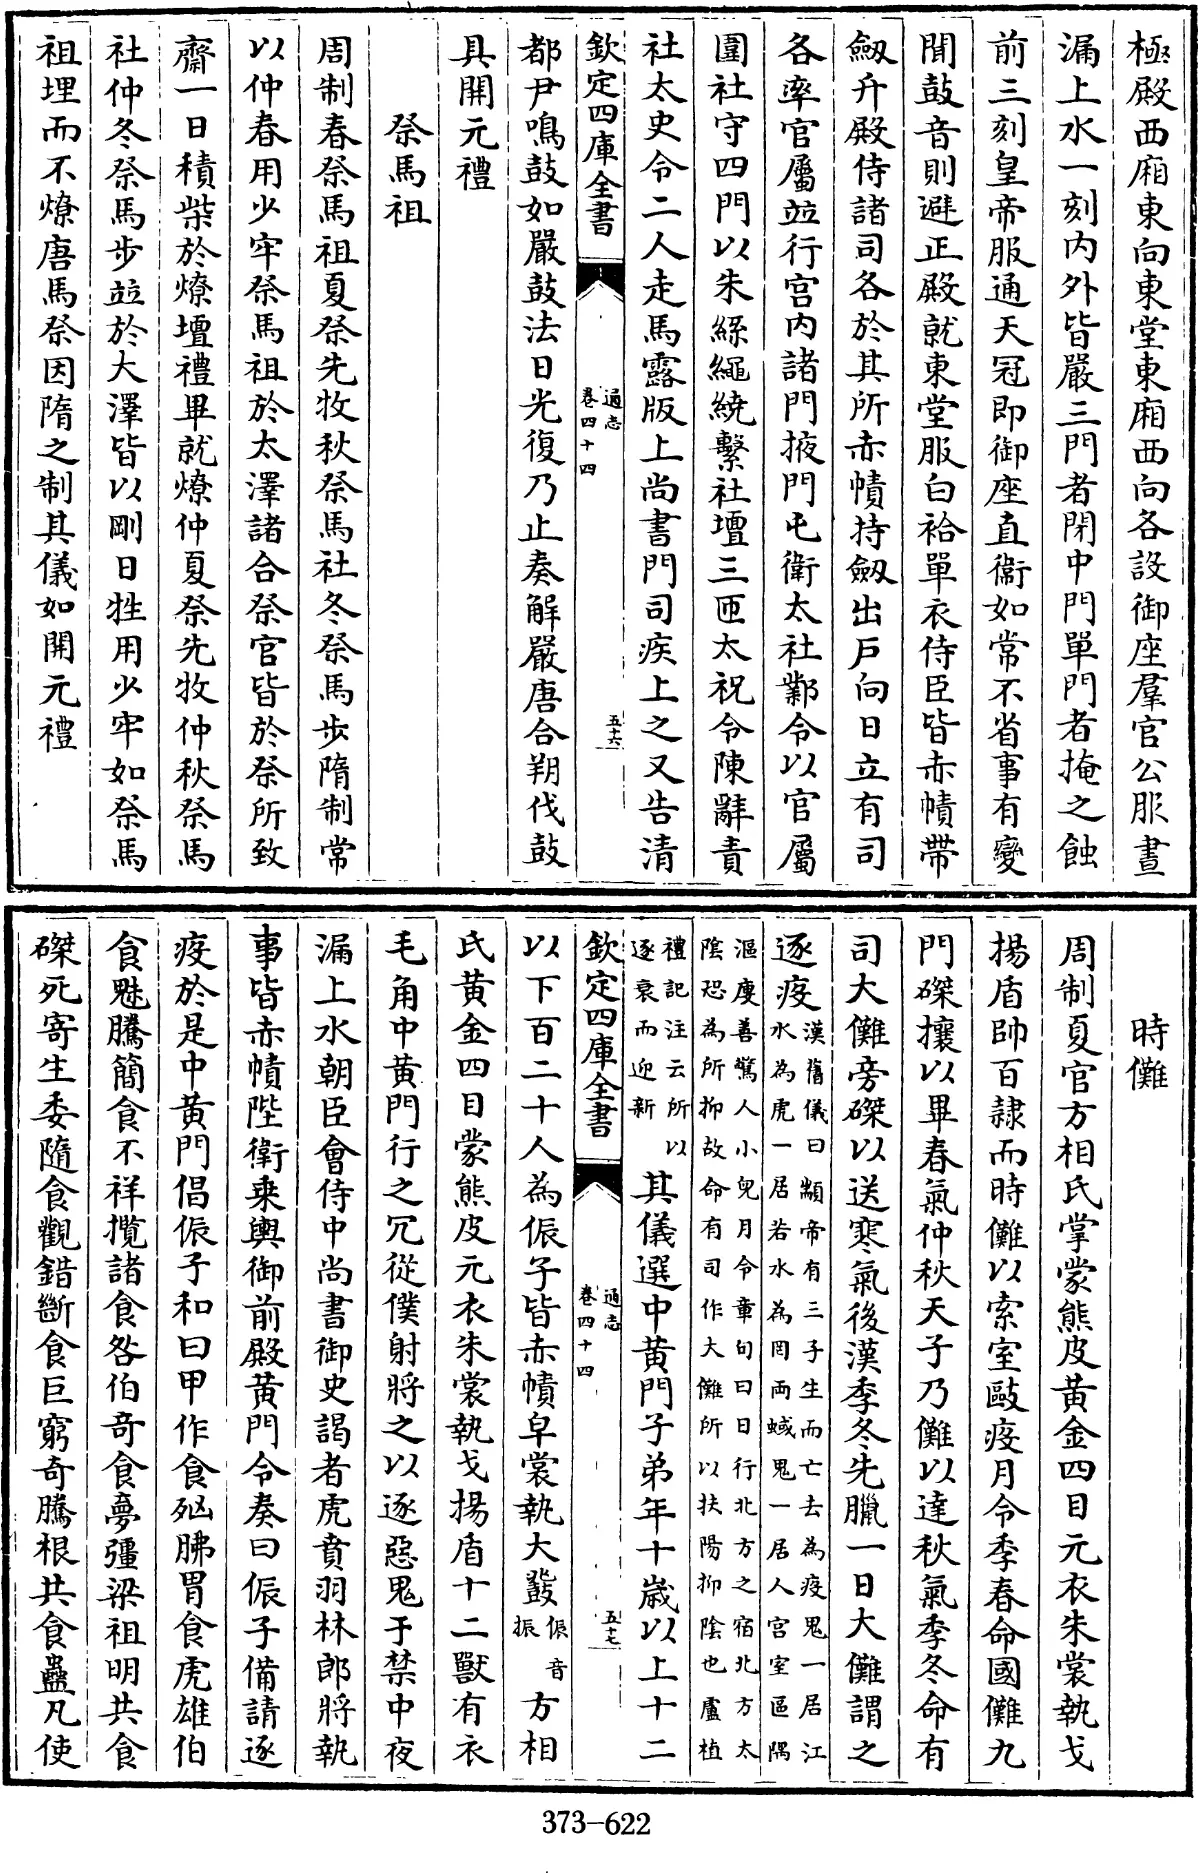 極殿西廂東向東堂東廂西向各設御座羣官公服晝
漏上水一刻内外皆嚴三門者閉中門單門者掩之蝕
前三刻皇帝服通天冠即御座直衞如常不省事有變
聞鼓音則避正殿就東堂服白袷單衣侍臣皆赤幘帶
劔升殿侍諸司各於其所赤幘持劔出戶向日立有司
各率官屬竝行宫内諸門掖門屯衛太社鄴令以官屬
圍社守四門以朱絲繩繞繫社壇三匝太祝令陳辭責
社太史令二人走馬露版上尚書門司疾上之又告清
欽定四庫全書
通志
卷四十四
五十六
都尹鳴鼓如嚴鼓法日光復乃止奏解嚴唐合朔伐鼓
具開元禮
祭馬祖
周制春祭馬祖夏祭先牧秋祭馬社冬祭馬步隋制常
以仲春用少牢祭馬祖於太澤諸合祭官皆於祭所致
齋一日積柴於燎壇禮畢就燎仲夏祭先牧仲秋祭馬
社仲冬祭馬步竝於大澤皆以剛日牲用少牢如祭馬
祖埋而不燎唐馬祭因隋之制其儀如開元禮
時儺
周制夏官方相氏掌蒙熊皮黄金四目元衣朱裳執戈
揚盾帥百隷而時儺以索室毆疫月令季春命國儺九
門磔攘以畢春氣仲秋天子乃儺以達秋氣季冬命有
司大儺旁磔以送寒氣後漢季冬先臘一日大儺謂之
逐疫漢舊儀曰顓帝有三子生而亡去為疫鬼一居江
水為虎一居若水為罔兩蜮鬼一居人宫室區隅
漚庾善驚人小兒月令章句曰日行北方之宿北方太
陰恐為所抑故命有司作大儺所以扶陽抑陰也盧植
禮記注云所以
逐衰而迎新
其儀選中黄門子弟年十歳以上十二
欽定四庫全書
通志
卷四十四
五十七
以下百二十人為侲子皆赤幘皁裳執大鼗侲音
振
方相
氏黄金四目蒙熊皮元衣朱裳執戈揚盾十二獸有衣
毛角中黄門行之冗從僕射將之以逐惡鬼于禁中夜
漏上水朝臣會侍中尚書御史謁者虎賁羽林郎將執
事皆赤幘陛衛乗輿御前殿黄門令奏曰侲子備請逐
疫於是中黄門倡侲子和曰甲作食㐫胇胃食虎雄伯
食魅騰簡食不祥攬諸食咎伯奇食夢彊梁祖明共食
磔死寄生委隨食觀錯斷食巨窮奇騰根共食蠱凡使
373-622